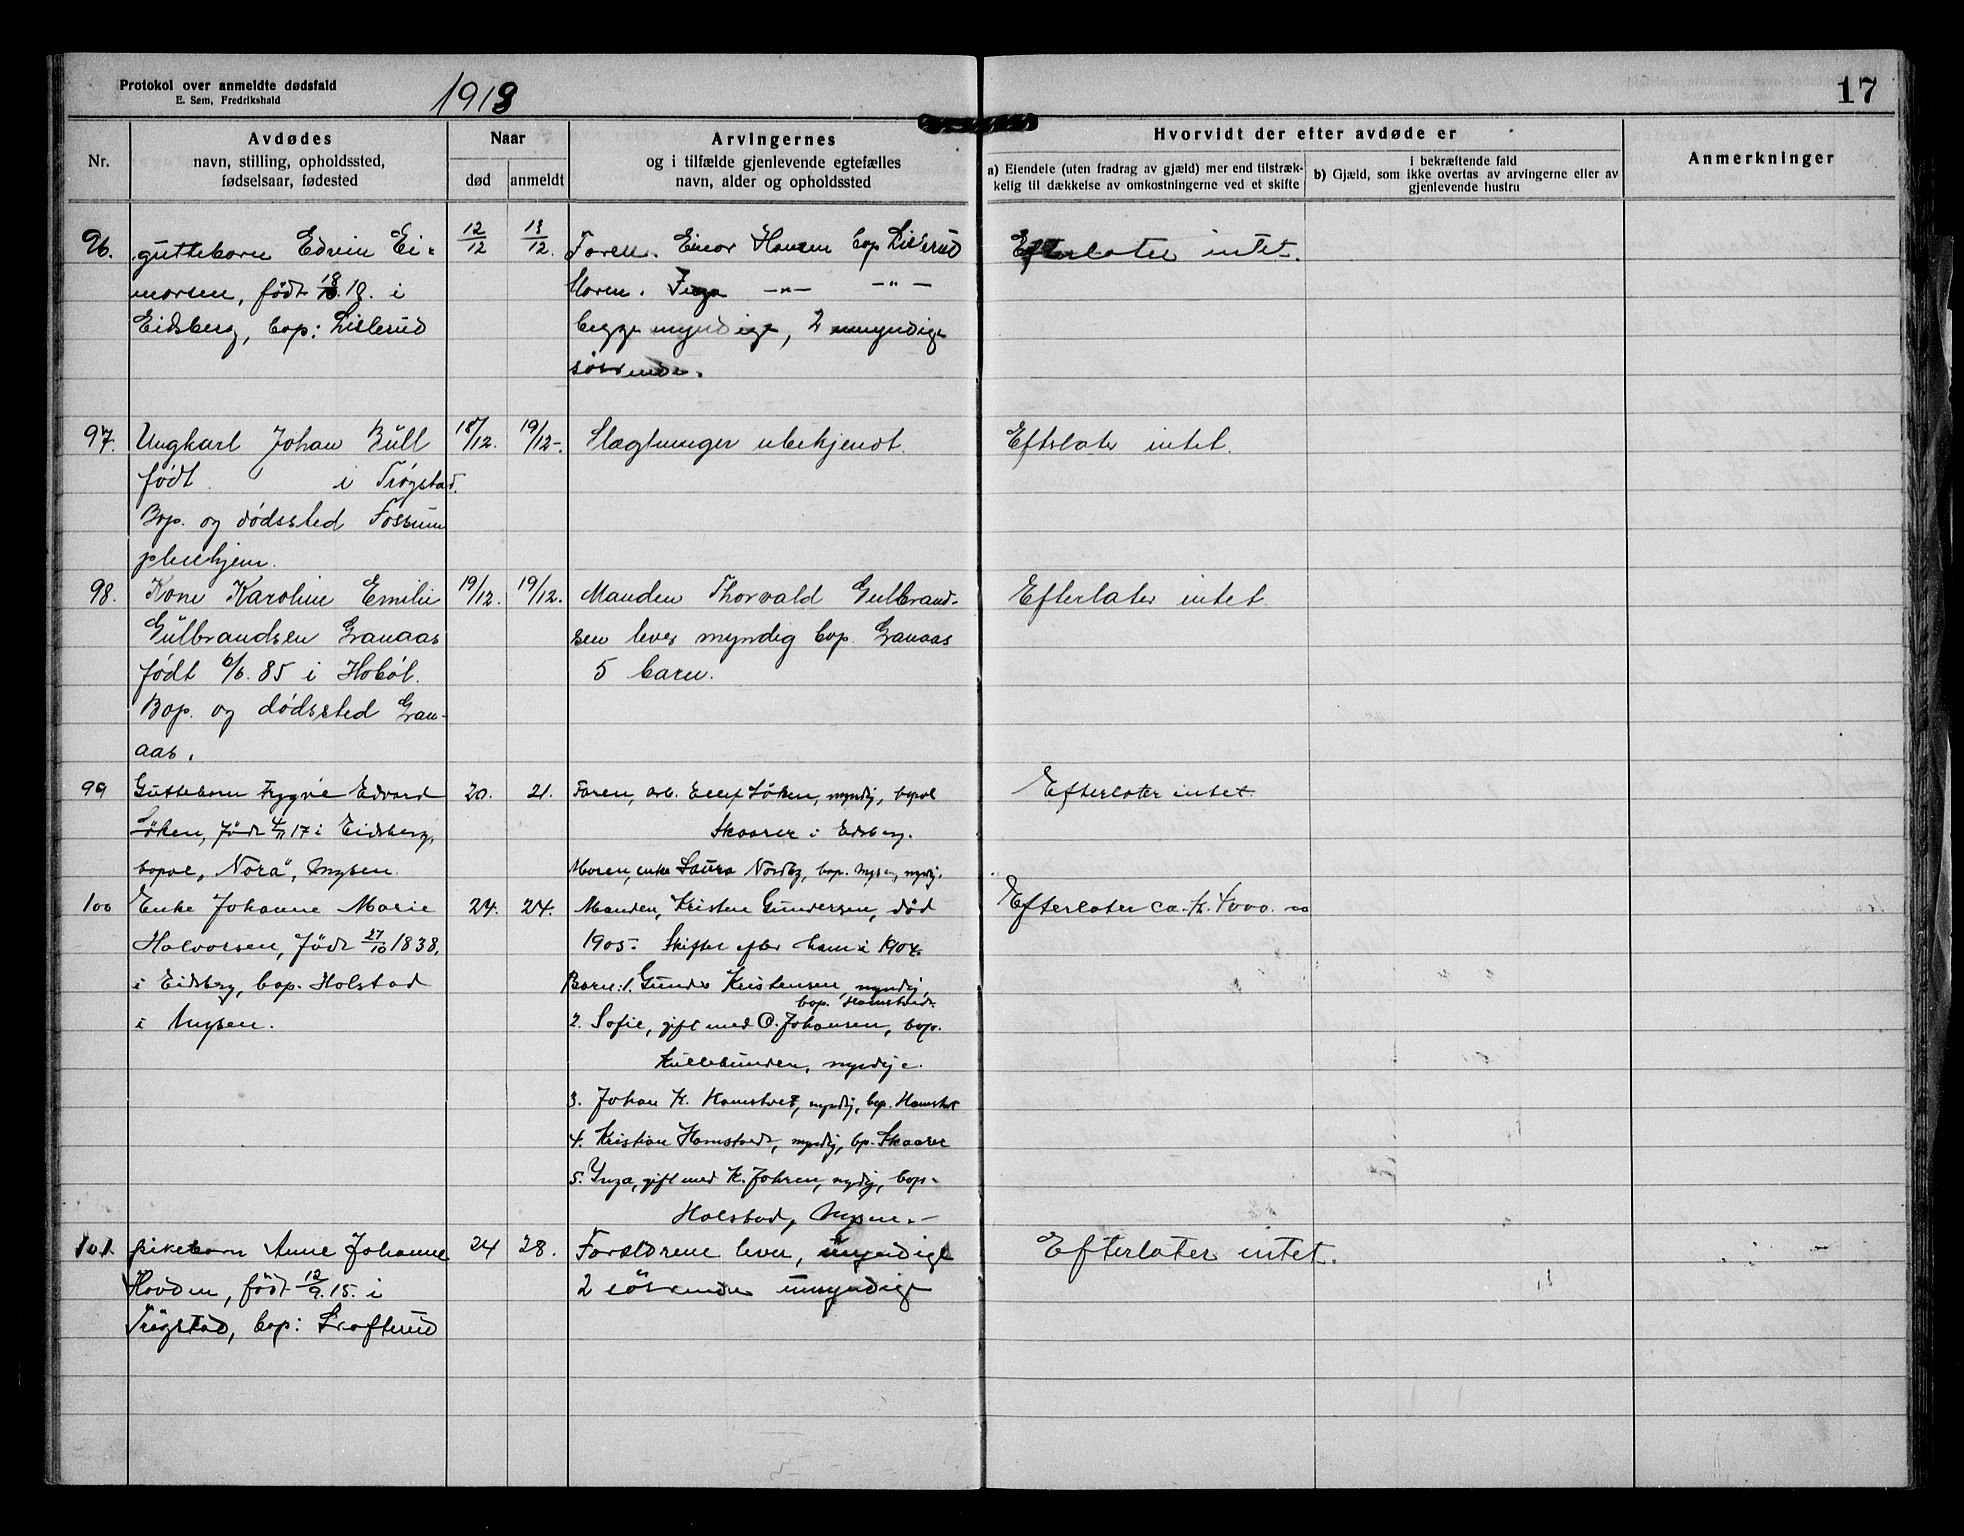 Protokol over anmeldte dødsfald
E. Søm, Fredrikshald
1918
17
Nr.
Avdødes
navn, stilling, opholdssted,
fødselsaar, fødested
Naar
død
anmeldt
Arvingernes
og i tilfælde gjenlevende egtefælles
navn, alder og opholdssted
Hvorvidt der efter avdøde er
a) Eiendele (uten fradrag av gjæld) mer end tilstræk-
kelig til dækkelse av omkostningerne ved et skifte
i bekræftende fald
b) Gjæld, som ikke overtas av arvingerne eller av
gjenlevende hustru
Anmerkninger
96. gutteborn Edvin Ei- 12/12 13/12. Faren. Einar Hansen bop Lislerud Efterlater intet.
narsen, født 18. i Moren. Inga -"- -"-
Eidsberg, bop: Lislerud begge myndige, 2 umyndige
søskende.
97. Ungkarl Johan Büll 18/12. 19/12- Slægtninger ubekjendt. Efterlater intet.
født i Trøgstad.
Bop. og dødssted Fossum
pleiehjem.
98. Kone Karoline Emilie 19/12. 19/12. Manden Thorvald Gulbrand- Efterlater intet.
Gulbrandsen Granaas sen lever myndig bop. Granaas
født 6/6. 85 i Hobøl. 5 barn.
Bop. og dødssted Gran-
aas.
99 Gutteborn Trygve Edvard 20. 21. Faren, arb. Ellef Løken, myndig, bopæl Efterlater intet.
Løken, født 4/11 17 i Eidsberg, Skaarer i Eidsberg.
bopæl, "Nora", Mysen. Moren, enke Laura Nordby, bop. Mysen, myndig.
100 Enke Johanne Marie 24. 24. Manden, Kristen Gundersen, død Efterlater ca. kr. 4000.
Halvorsen, født 27/10 1838, 1905. Skiftet efter ham i 1904.
i Eidsberg, bop. Holstad Barn: 1. Gunder Kristensen, myndig,
bop. Hamstvedt.
i Mysen. 2. Sofie, gift med O. Johansen, bop.
Kullebunden, myndige.
3. Johan K. Hamstvet, myndig, bop. Hamstvet
4. Kristian Hamstvedt, myndig, bp. Skaarer
5. Inga, gift med K. Johsen, myndig, bop.
Holstad, Mysen.-
101. pikeborn Anne Johanne 24 28. Forældrene lever, myndige Efterlater intet.
Hovden, født 12/9. 15. i 2 søskende umyndige
Trøgstad, bop: Krafterud